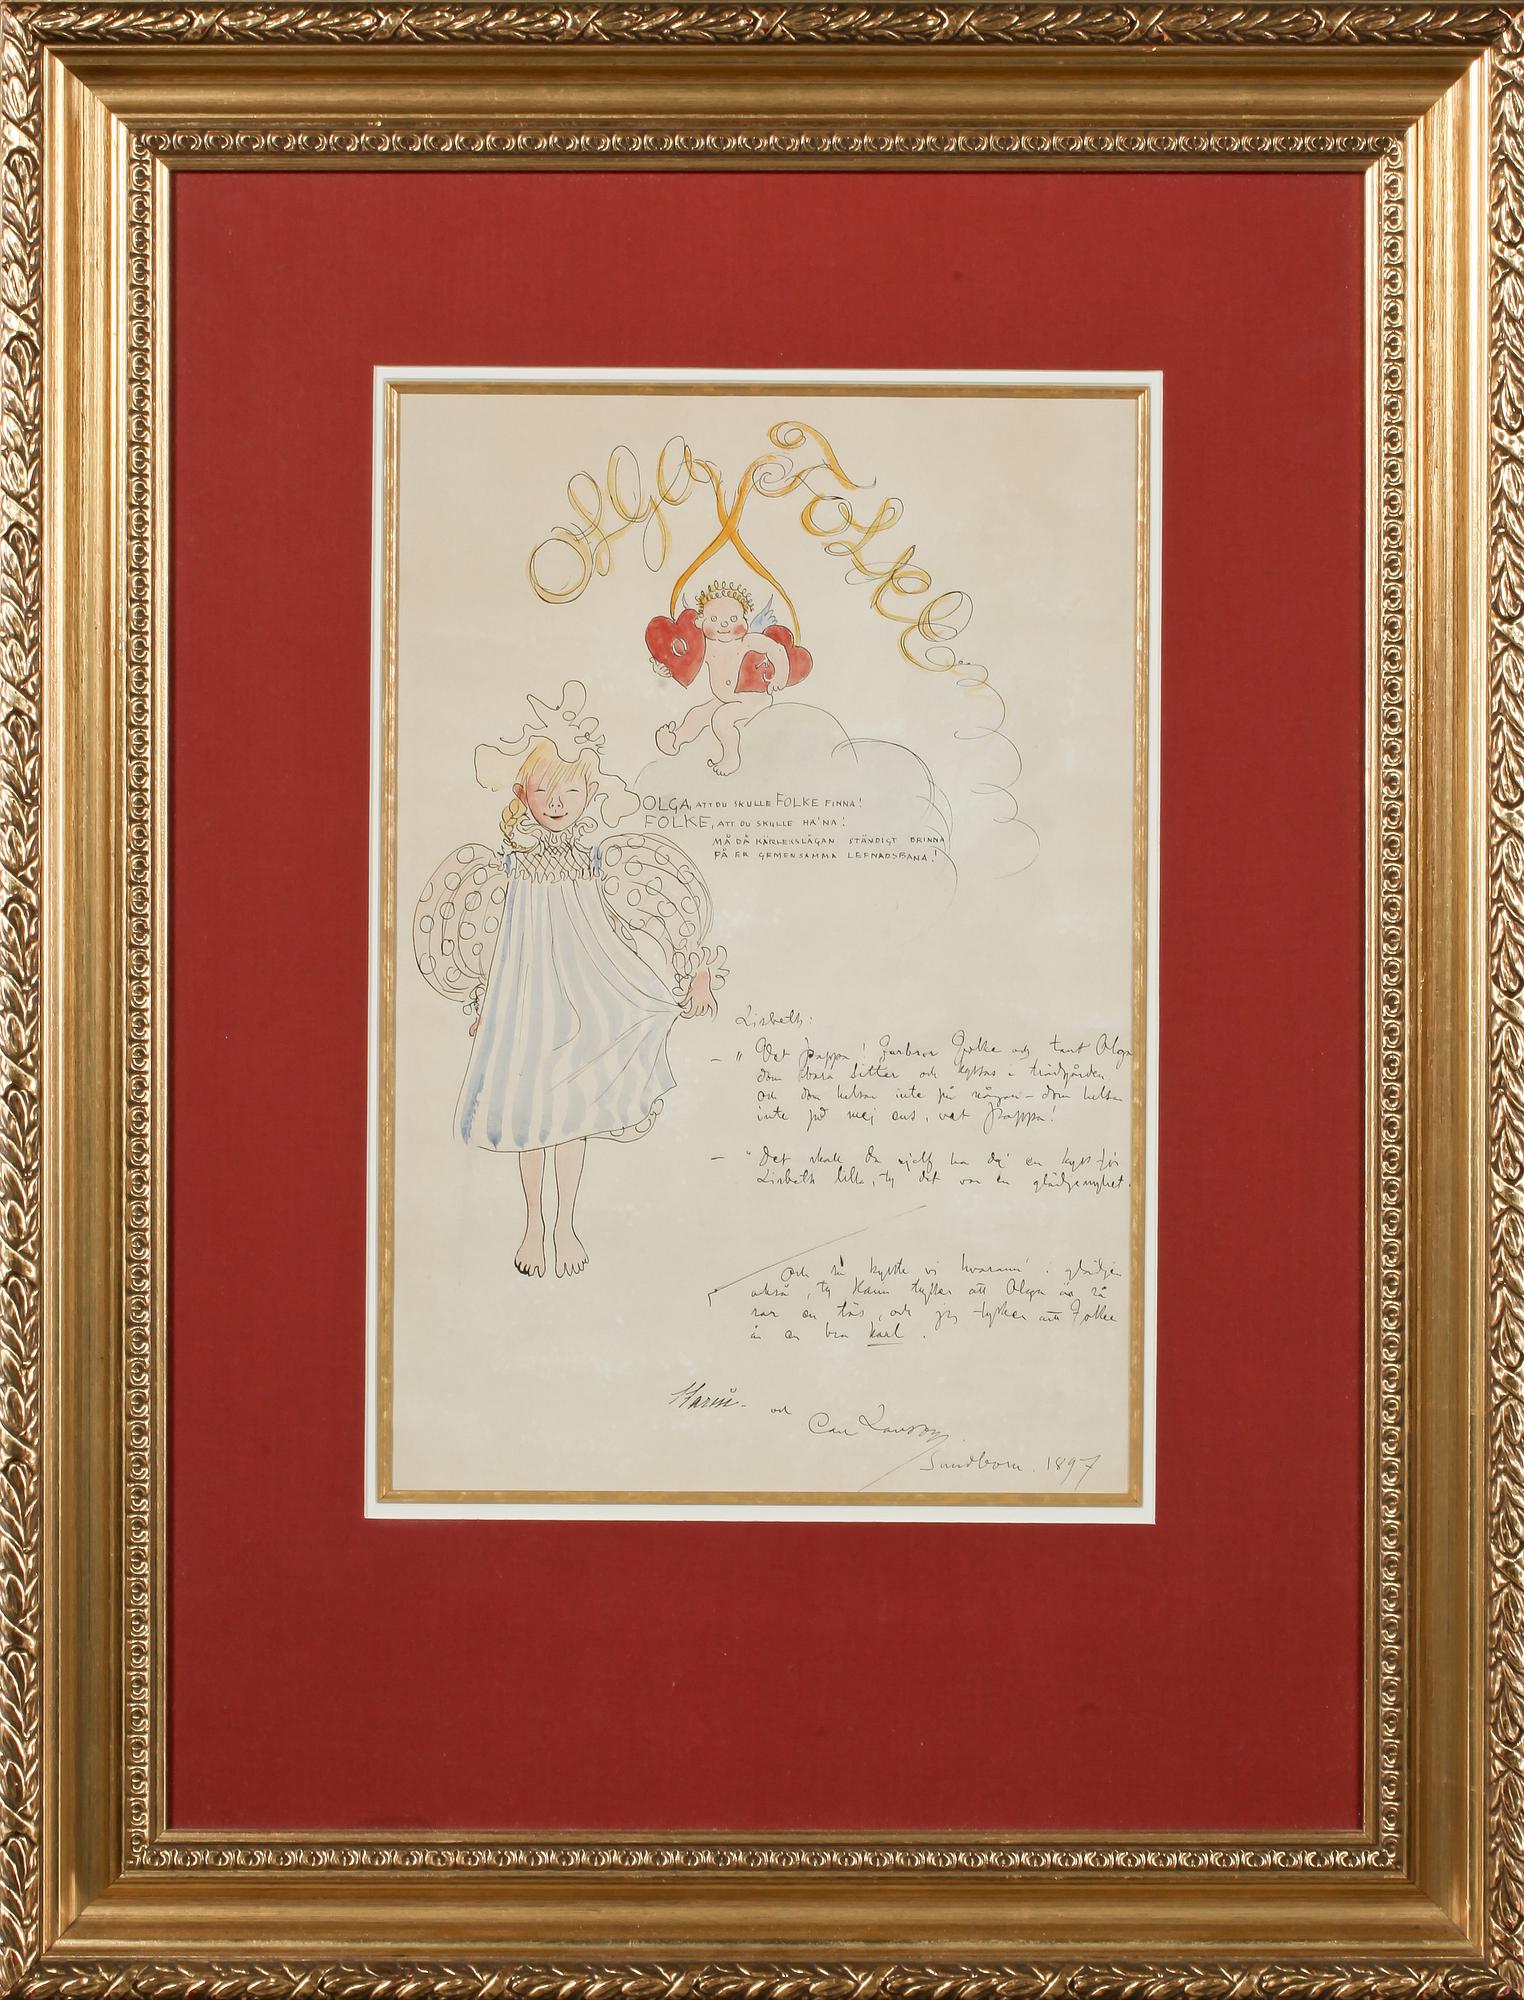 Olga Folke
OLGA, ATT DU SKULLE FOLKE FINNA!
FOLKE, ATT DU SKULLE HA'NA!
MÅ DÅ KÄRLEKSLÅGAN STÄNDIGT BRINNA
PÅ ER GEMENSAMMA LEFNADSBANA!
Lisbeth:
— "Vet pappa! farbror Folke och tant Olga
dom bara sitter och kyssas i trädgården
och dom helsar inte på någon – dom helsar
inte på mej ens, vet pappa!
— "Det skall du sjelf ha dig en kyss för
Lisbeth lilla, ty det var en glädjenyhet.
och så kysste vi hvarann i glädjen
också, ty Karin tycker att Olga är så
rar en tös, och jag tycker att Folke
är en bra karl.
Karin och
Carl Larsson
Sundborn. 1897